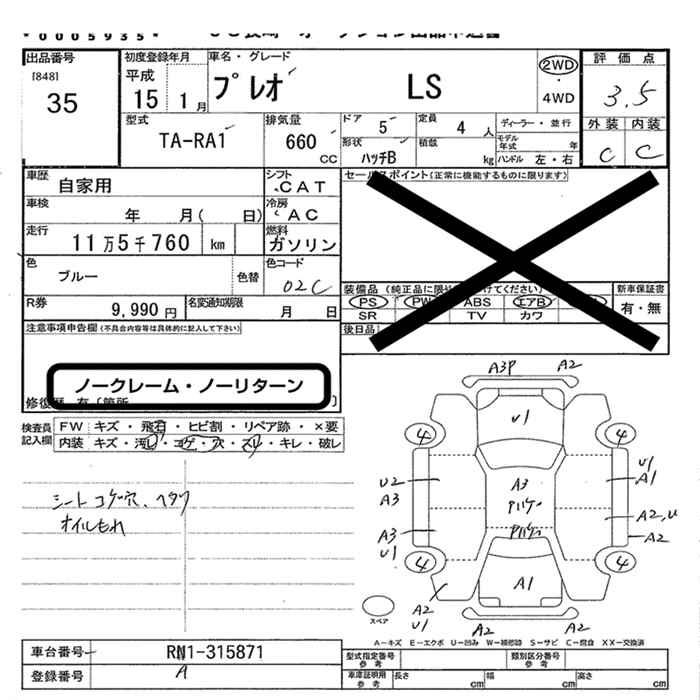 *0005935*
出品番号
[848]
35
初度登録年月
平成
15 1月
車名・グレード
プレオ LS
2WD
・
4WD
評価点
3.5
外装 内装
C C
型式
TA-RA1
排気量
660 cc
ドア
5
形状
ハッチB
定員
4 人
積載
kg
ディーラー・並行
モデル年式 年
ハンドル 左・右
車歴
自家用
シフト
CAT
車検
年 月( 日)
冷房
AC
走行
11万5千760 km
燃料
ガソリン
色
ブルー
色替
色コード
02C
R券
9,990円
名変通知期限
月 日
セールスポイント(正常に機能するものに限ります)
装備品(純正品に限り
けてください)
PS PW ABS エアB
SR TV カワ
新車保証書
有・無
後日品
注意事項申告欄(不具合内容等は具体的に記入して下さい)
ノークレーム・ノーリターン
修復歴 有〔箇所 〕
検査員記入欄
FW キズ・飛石・ヒビ割・リペア跡・×要
内装 キズ・汚レ・コゲ・穴・スリ・キレ・破レ
シートコゲ穴、ヘタリ
オイルもれ
A3P A2
U1
4 4
U2
A3
A3
アルゲー
アルゲー
U1
A1
A3
U1
A2,U
A2
4 4
A1
A2
U1
A2 A2
スペア
A-キズ E-エクボ U-凹み W-補修跡 S-サビ C-腐食 XX-交換済
車台番号
RN1-315871
A
登録番号
型式指定番号
参考
類別区分番号
参考
車庫証明用
参考
長さ cm
幅 cm
高さ cm